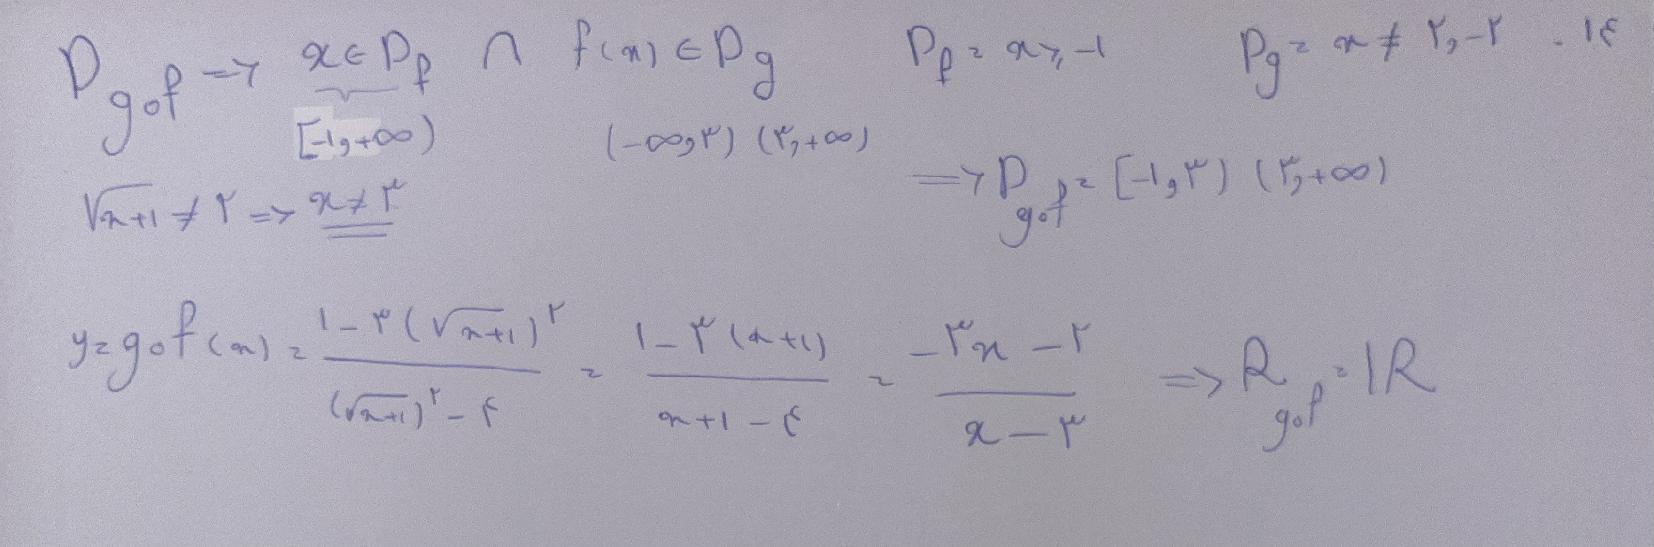 D_gof => x ∈ D_f ∩ f(x) ∈ D_g    D_f = x ≥ -۱    D_g = x ≠ ۲, -۲    . ۱۴
[-۱, +∞)    (-∞, ۳) (۳, +∞)
√x+۱ ≠ ۲ => x ≠ ۳    => D_gof = [-۱, ۳) (۳, +∞)
y = gof(x) = ۱ - ۳(√x+۱)^۲ / (√x+۱)^۲ - ۴ = ۱ - ۳(x+۱) / x+۱ - ۴ = -۳x - ۲ / x - ۳ => R_gof = IR